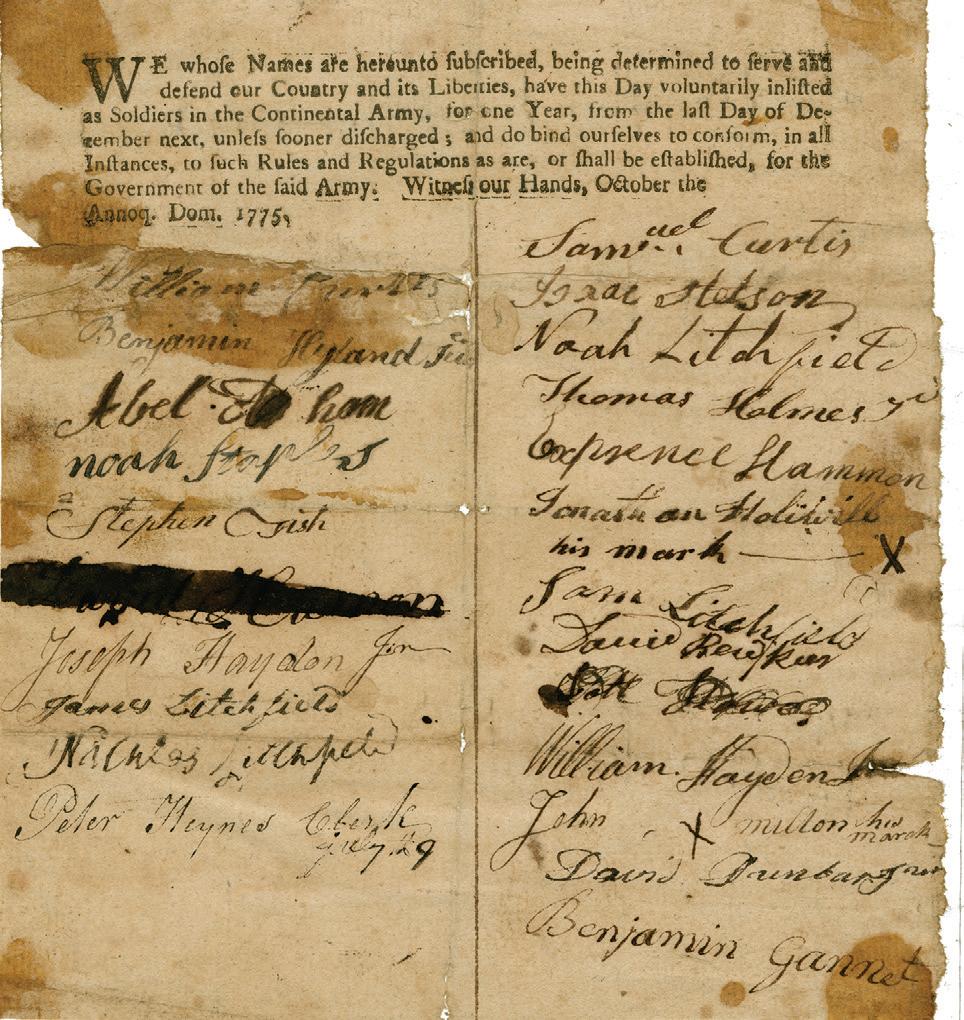 WE whose Names are hereunto subscribed, being determined to serve and
defend our Country and its Liberties, have this Day voluntarily inlisted
as Soldiers in the Continental Army, for one Year, from the last Day of De-
cember next, unless sooner discharged; and do bind ourselves to conform, in all
Instances, to such Rules and Regulations as are, or shall be established, for the
Government of the said Army. Witness our Hands, October the
Annoq. Dom. 1775,
William Curtis
Benjamin Hyland
Abel
noah Staples
Stephen
Joseph Haydon Jnr
James Litchfield
Litchfield
Peter Heynes Clerk
july 29
Samuel Curtis
Isaac Stetson
Noah Litchfield
Thomas Holmes Jr
Exprence Hammon
Jonathan
his mark X
Sam Litchfield
David
William Hayden Jnr
John X milton his
mark
David Dunbar
Benjamin Gannet